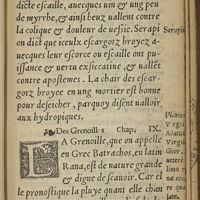 dicte escaille, auecques uin & ung peu
de myrrhe, & ainsi beuz uallent contre
la colique & douleur de uessie. Serapi
on dict que iceulx escargotz broyez a-
uecques leur escorce ou escaille ont pu-
issance & uertu exsiccatiue, & uallēt
contre apostemes. La chair des escar-
gotz broyee en ung mortier est bonne
pour deseicher, parquoy disent ualloir
aux hydropiques.
Des Grenoilles Chap. IX.
LA Grenoille, que on appelle
en Grec Batrachos, en latin
Rana, est de nature grande
& digne de scauoir. Car el
le pronostique la pluye quant elle chan
Serapio
Plinius
Virgil
Aratus
Virgil
Geor